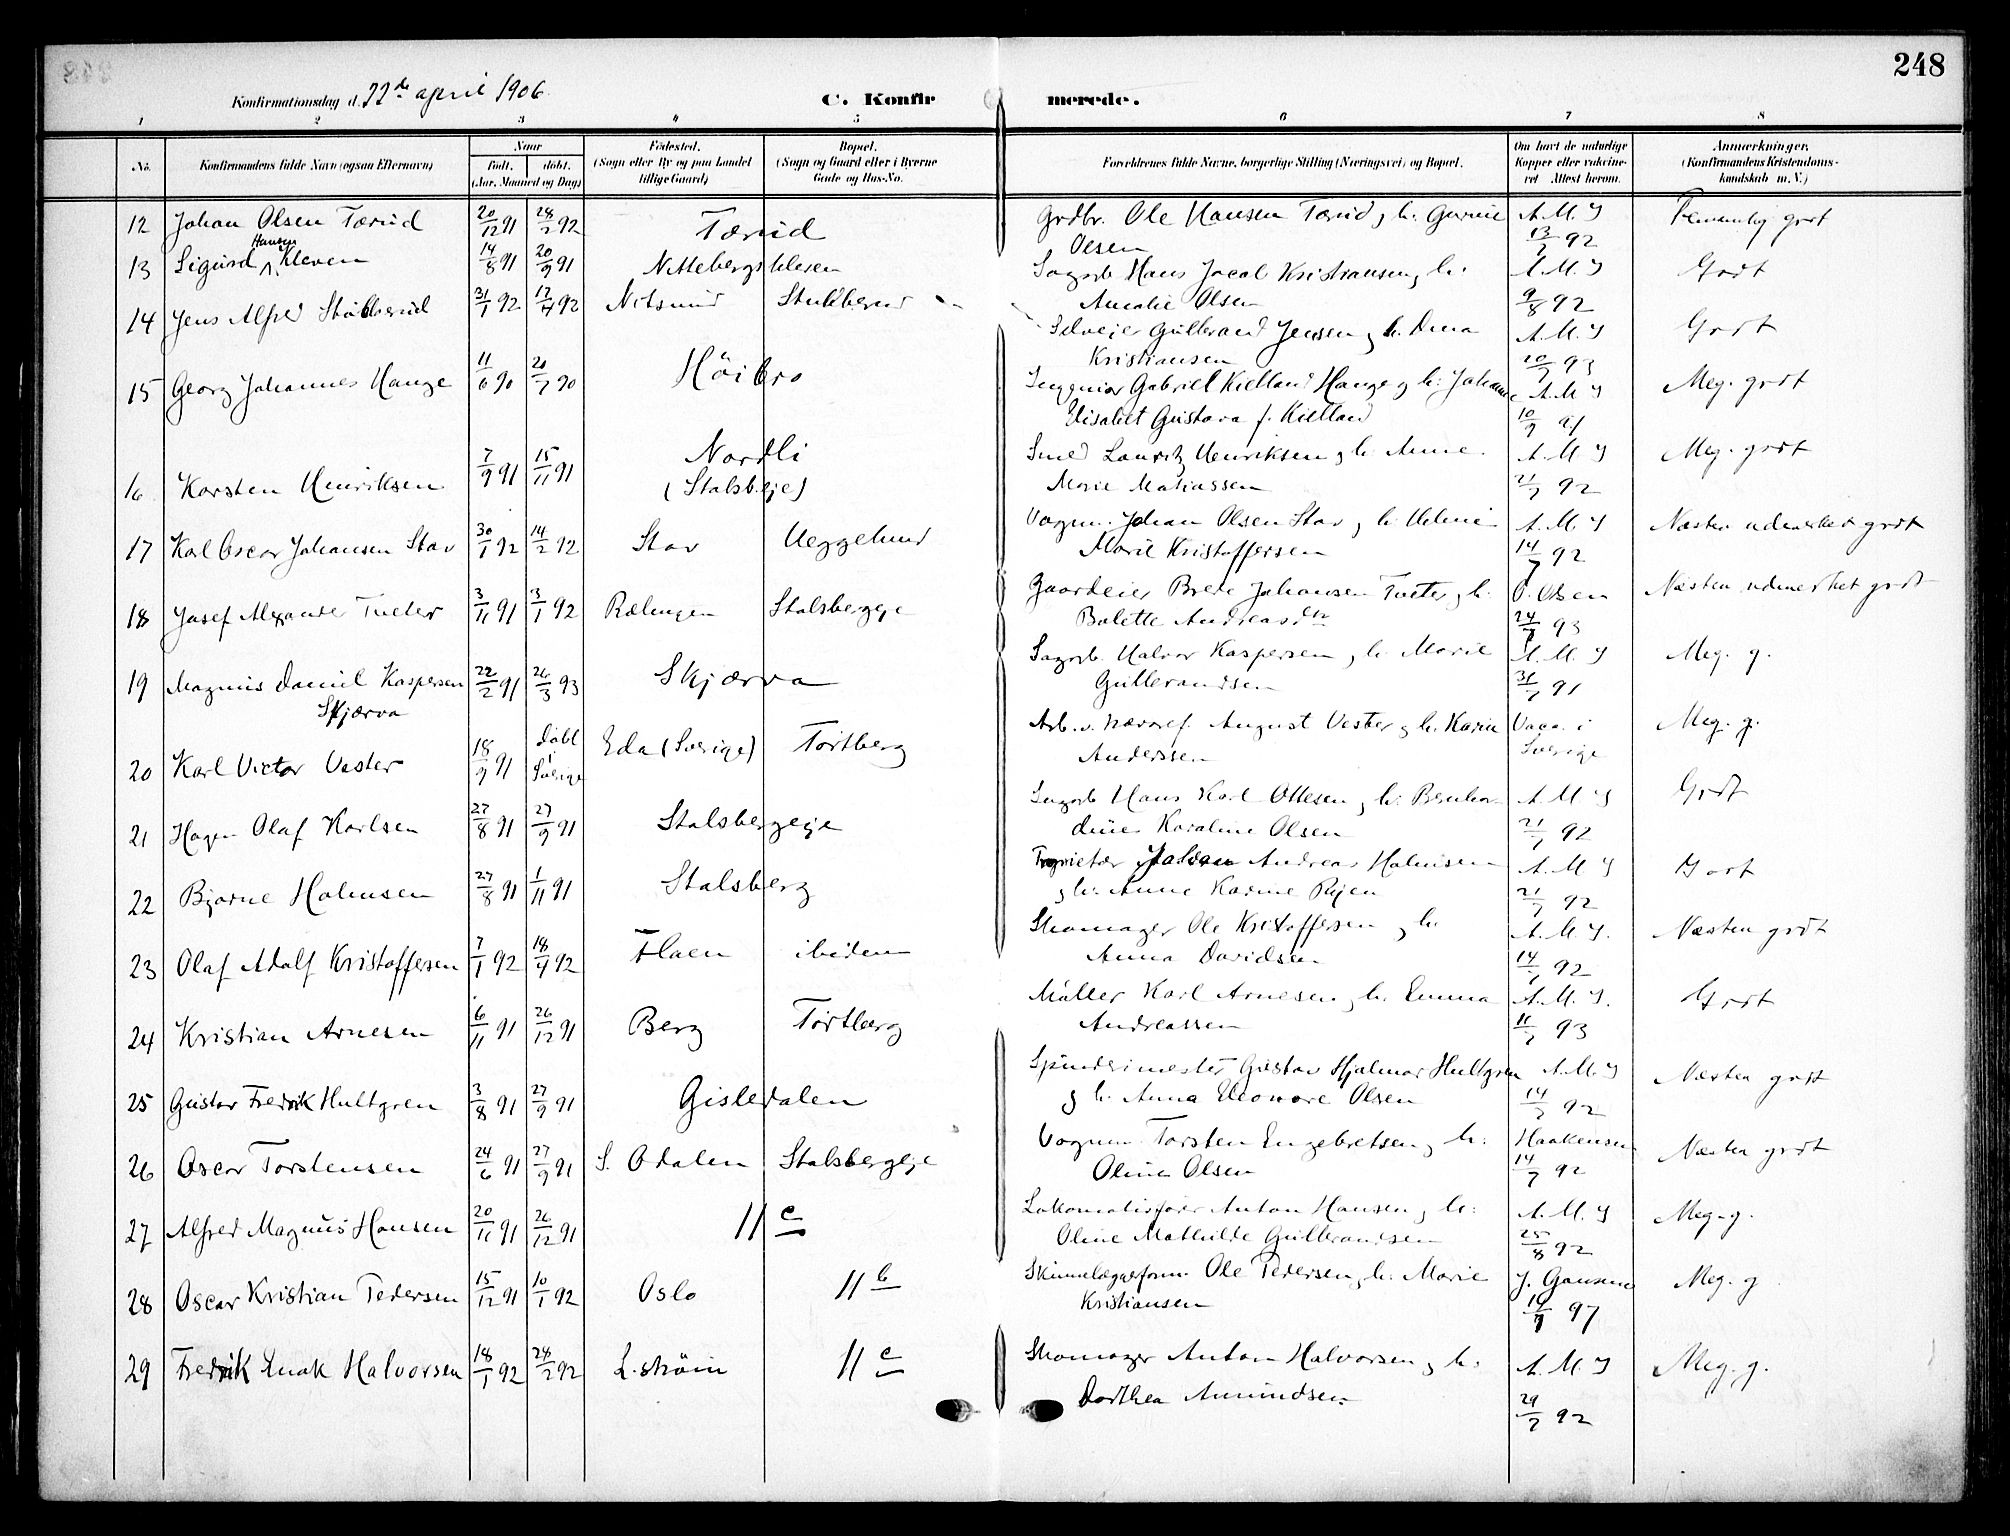 248
Konfirmationsdag d. 22de april 1906.
C. Konfirmerede.
1 2 3 4 5 6 7 8
No. Konfirmandens fulde Navn (ogsaa Efternavn) Naar født. døbt. (Aar, Maaned og Dag) Fødested. (Sogn eller By og paa Landet tillige Gaard) Bopæl. (Sogn og Gaard eller i Byerne Gade og Hus-No. Forældrenes fulde Navne, borgerlige Stilling (Næringsvei) og Bopæl. Om havt de naturlige Kopper eller vakcineret Attest herom. Anmærkninger. (Konfirmandens Kristendomskundskab m. V.)
12 Johan Olsen Tærud 20/12 91 28/2 92 Tærud Grdbr. Ole Hansen Tærud og h. Gurine A. M. S Temmelig godt
Olsen 13/7 92
13 Sigurd Hansen Kleven 14/8 91 20/9 91 Nittebergskleven Sagarb. Hans Jacob Kristiansen og h. A. M. S Godt
Amalie Olsen 9/8 92
14 Jens Alfred Stubberud 31/1 92 17/4 92 Nitsund Stubberud Selveier Gulbrand Jensen og h. Dina A. M. S Godt
Kristiansen 20/7 93
15 Georg Johannes Hauge 11/6 90 20/7 90 Høibro Ingeniør Gabriel Kielland Hauge og h. Johanne A. M. S Meg. godt
Elisabet Gustava f. Kielland 10/9 91
16 Karsten Henriksen 7/9 91 15/11 91 Nordli Smed Lauritz Henriksen og h. Anne A. M. S Meg. godt
(Stalsb.eje) Marie Matiassen 21/7 92
17 Karl Oscar Johansen Stav 30/1 92 14/2 92 Stav Heggelund Vognm. Johan Olsen Stav og h. Helene A. M. S Næsten udmerket godt
Marie Kristoffersen 14/7 92
18 Josef Alexander Tveter 3/11 91 3/1 92 Rælingen Stalsbergeje Gaardeier Brede Johansen Tveter og h. O. Olsen Næsten udmerket godt
Bolette Andreasdtr 24/7 93
19 Magnus Daniel Kaspersen 22/2 91 26/3 93 Skjærva Sagarb. Halvor Kaspersen og h. Marie A. M. S Meg. g.
Skjærva Gulbrandsen 31/7 91
20 Karl Victor Vester 18/9 91 Døbt i Sverige Eda (Sverige) Tortberg Arb. v. August Vester og h. Karin Vacc. i Sverige Meg. g.
Anderssen
21 Hagen Olaf Karlsen 27/8 91 27/9 91 Stalsbergeje Sagarb. Hans Karl Ottesen og h. Bernhar- A. M. S Godt
dine Karoline Olsen 21/7 92
22 Bjarne Holmsen 27/8 91 1/11 91 Stalsberg Proprietær Johan Andreas Holmsen A. M. S Godt
og h. Anne Karine Rejen 21/7 92
23 Olaf Adolf Kristoffersen 7/1 92 18/4 92 Flaen ibidem Skomager Ole Kristoffersen og h. A. M. S. Næsten godt
Anna Davidsen 14/7 92
24 Kristian Arnesen 6/11 91 26/12 91 Berg Tortberg Møller Karl Arnesen og h. Emma A. M. S. Godt
Andreassen 11/7 93
25 Gustav Fredrik Hultgren 3/8 91 27/9 91 Gisledalen Spinderimester Gustav Hjalmar Hultgren A. M. S Næsten godt
og h. Anna Eleonore Olsen 14/7 92
26 Oscar Torstensen 24/6 91 27/9 91 S. Odalen Stalsbergeje Vognm. Torsten Engebretsen og h. Haakensen Næsten godt
Oline Olsen 14/7 92
27 Alfred Magnus Hansen 20/11 91 26/12 91 11 c Lokomotivfører Anton Hansen og h. A. M. S Meg. g.
Oline Mathilde Gulbrandsen 25/8 92
28 Oscar Kristian Pedersen 15/12 91 10/1 92 Oslo 11 b Ole Pedersen og h. Marie Meg. g
Kristiansen
29 Fredrik Enok Halvorsen 18/1 92 28/2 92 L.strøm 11 c Skomager Anton Halvorsen og h. A. M. S Meg. g.
Dorthea Amundsen 29/7 92